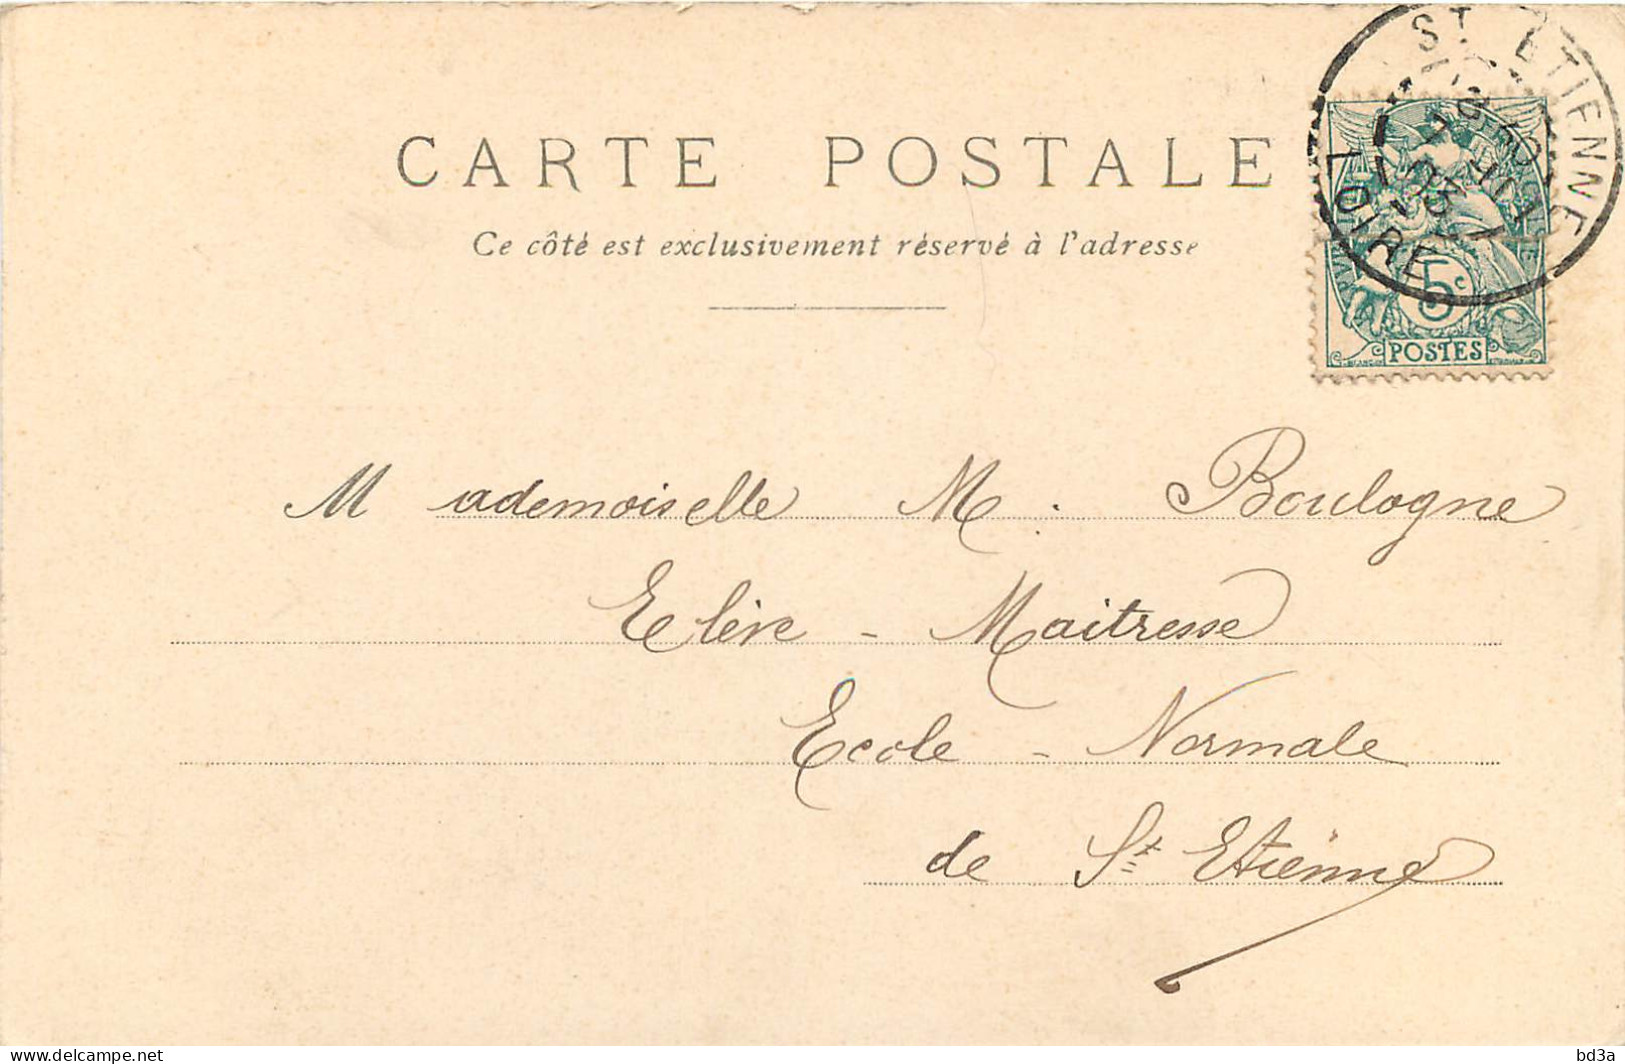 CARTE POSTALE
Ce côté est exclusivement réservé à l'adresse
ST ETIENNE
LOIRE
5c
POSTES
Mademoiselle M. Boulogne
Elève - Maitresse
Ecole - Normale
de St Etienne
delcampe.net
bd3a